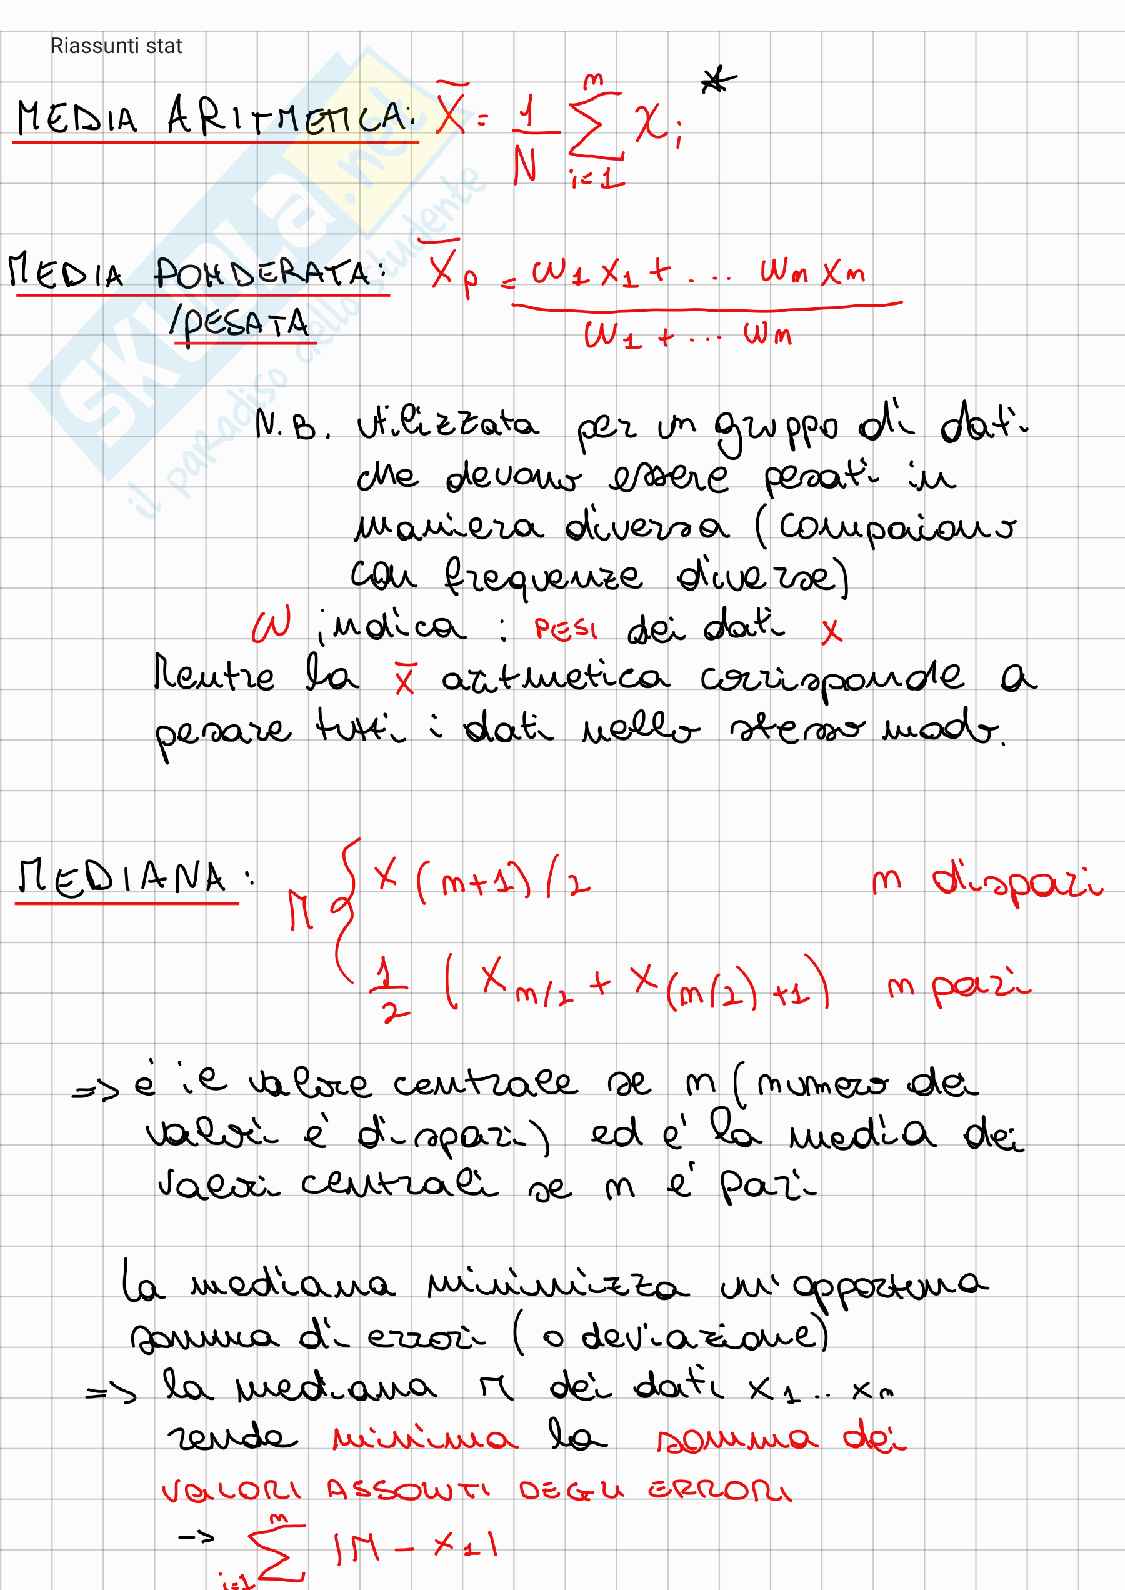 Riassunti stat
MEDIA ARITMETICA: X̄ = 1/N ∑_{i=1}^{n} x_i *
MEDIA PONDERATA: X̄p = w1 x1 + ... wn xn / w1 + ... wn
/PESATA
N.B. utilizzata per un gruppo di dati
che devono essere pesati in
maniera diversa (compaiono
con frequenze diverse)
W indica : PESI dei dati x
Mentre la x̄ aritmetica corrisponde a
pesare tutti i dati nello stesso modo.
MEDIANA: M { x (n+1)/2 n dispari
1/2 ( x n/2 + x (n/2)+1) n pari
=> é il valore centrale se n (numero dei
valori é dispari) ed é la media dei
valori centrali se n é pari
la mediana minimizza un'opportuna
somma di errori (o deviazione)
=> la mediana M dei dati x1 .. xn
rende minima la somma dei
VALORI ASSOLUTI DEGLI ERRORI
-> ∑_{i=1}^{n} |M - x1|
SKUOLA.net
il paradiso dello studente